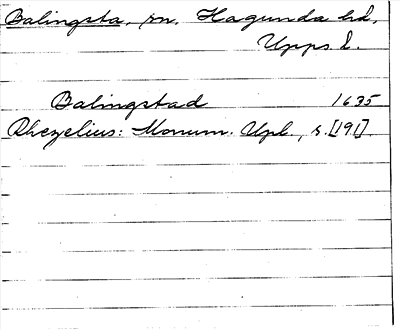 Balingsta, sn. Hagunda hd,
Upps. l.
Balingstad 1635
Rhezelius: Monum. Upl., s.[191].